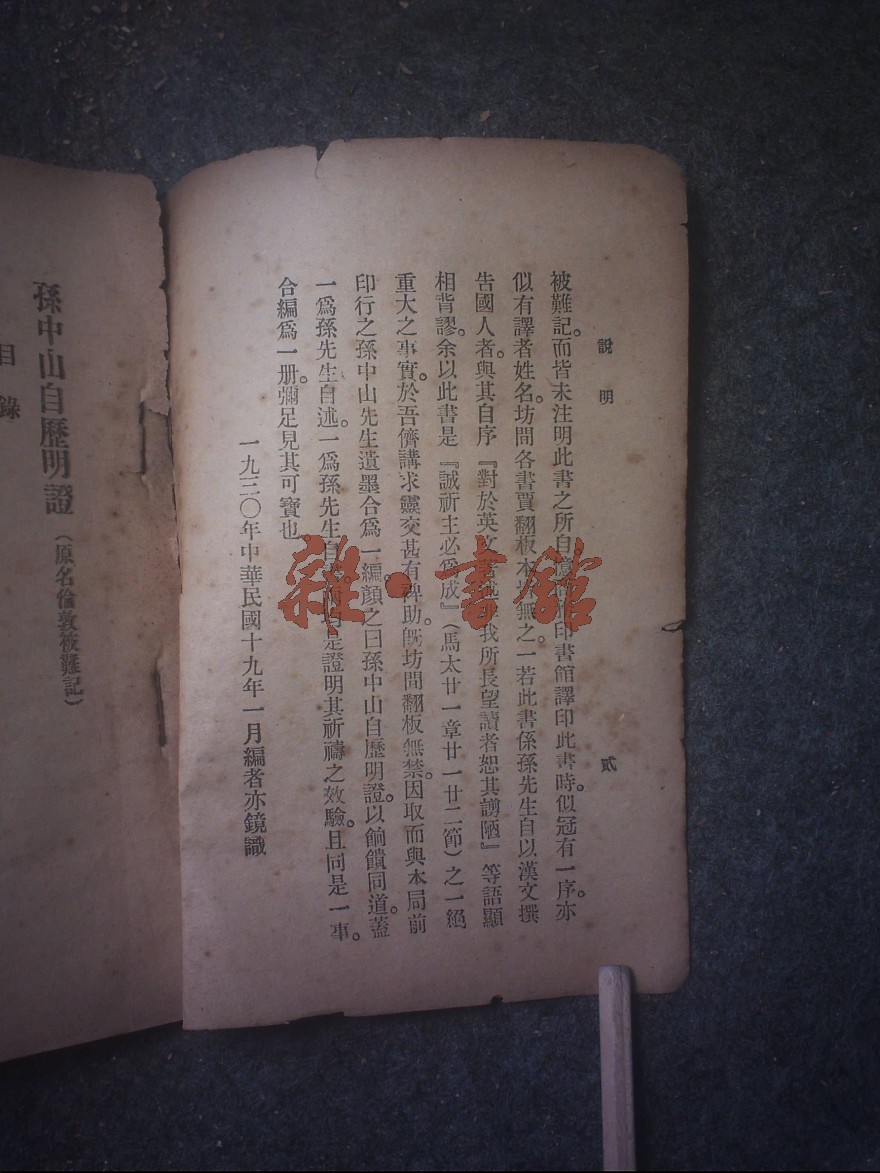 說明
貳
被難記。而皆未注明此書之所自
印書館譯印此書時。似冠有一序。亦
似有譯者姓名。坊間各書賈翻板本
無之。一若此書係孫先生自以漢文撰
告國人者。與其自序『對於英文
我所長望讀者恕其謭陋』等語顯
相背謬。余以此書是『誠祈主必爲成』(馬太廿一章廿一廿二節)之一絕
重大之事實。於吾儕講求靈交甚有裨助。旣坊間翻板無禁。因取而與本局前
印行之孫中山先生遺墨合爲一編。顏之曰孫中山自歷明證。以餉饋同道。蓋
一爲孫先生自述。一爲孫先生自
是證明其祈禱之效驗。且同是一事。
合編爲一册。彌足見其可寶也
一九三〇年中華民國十九年一月編者亦鏡識
孫中山自歷明證(原名倫敦被難記)
目錄
雜·書館